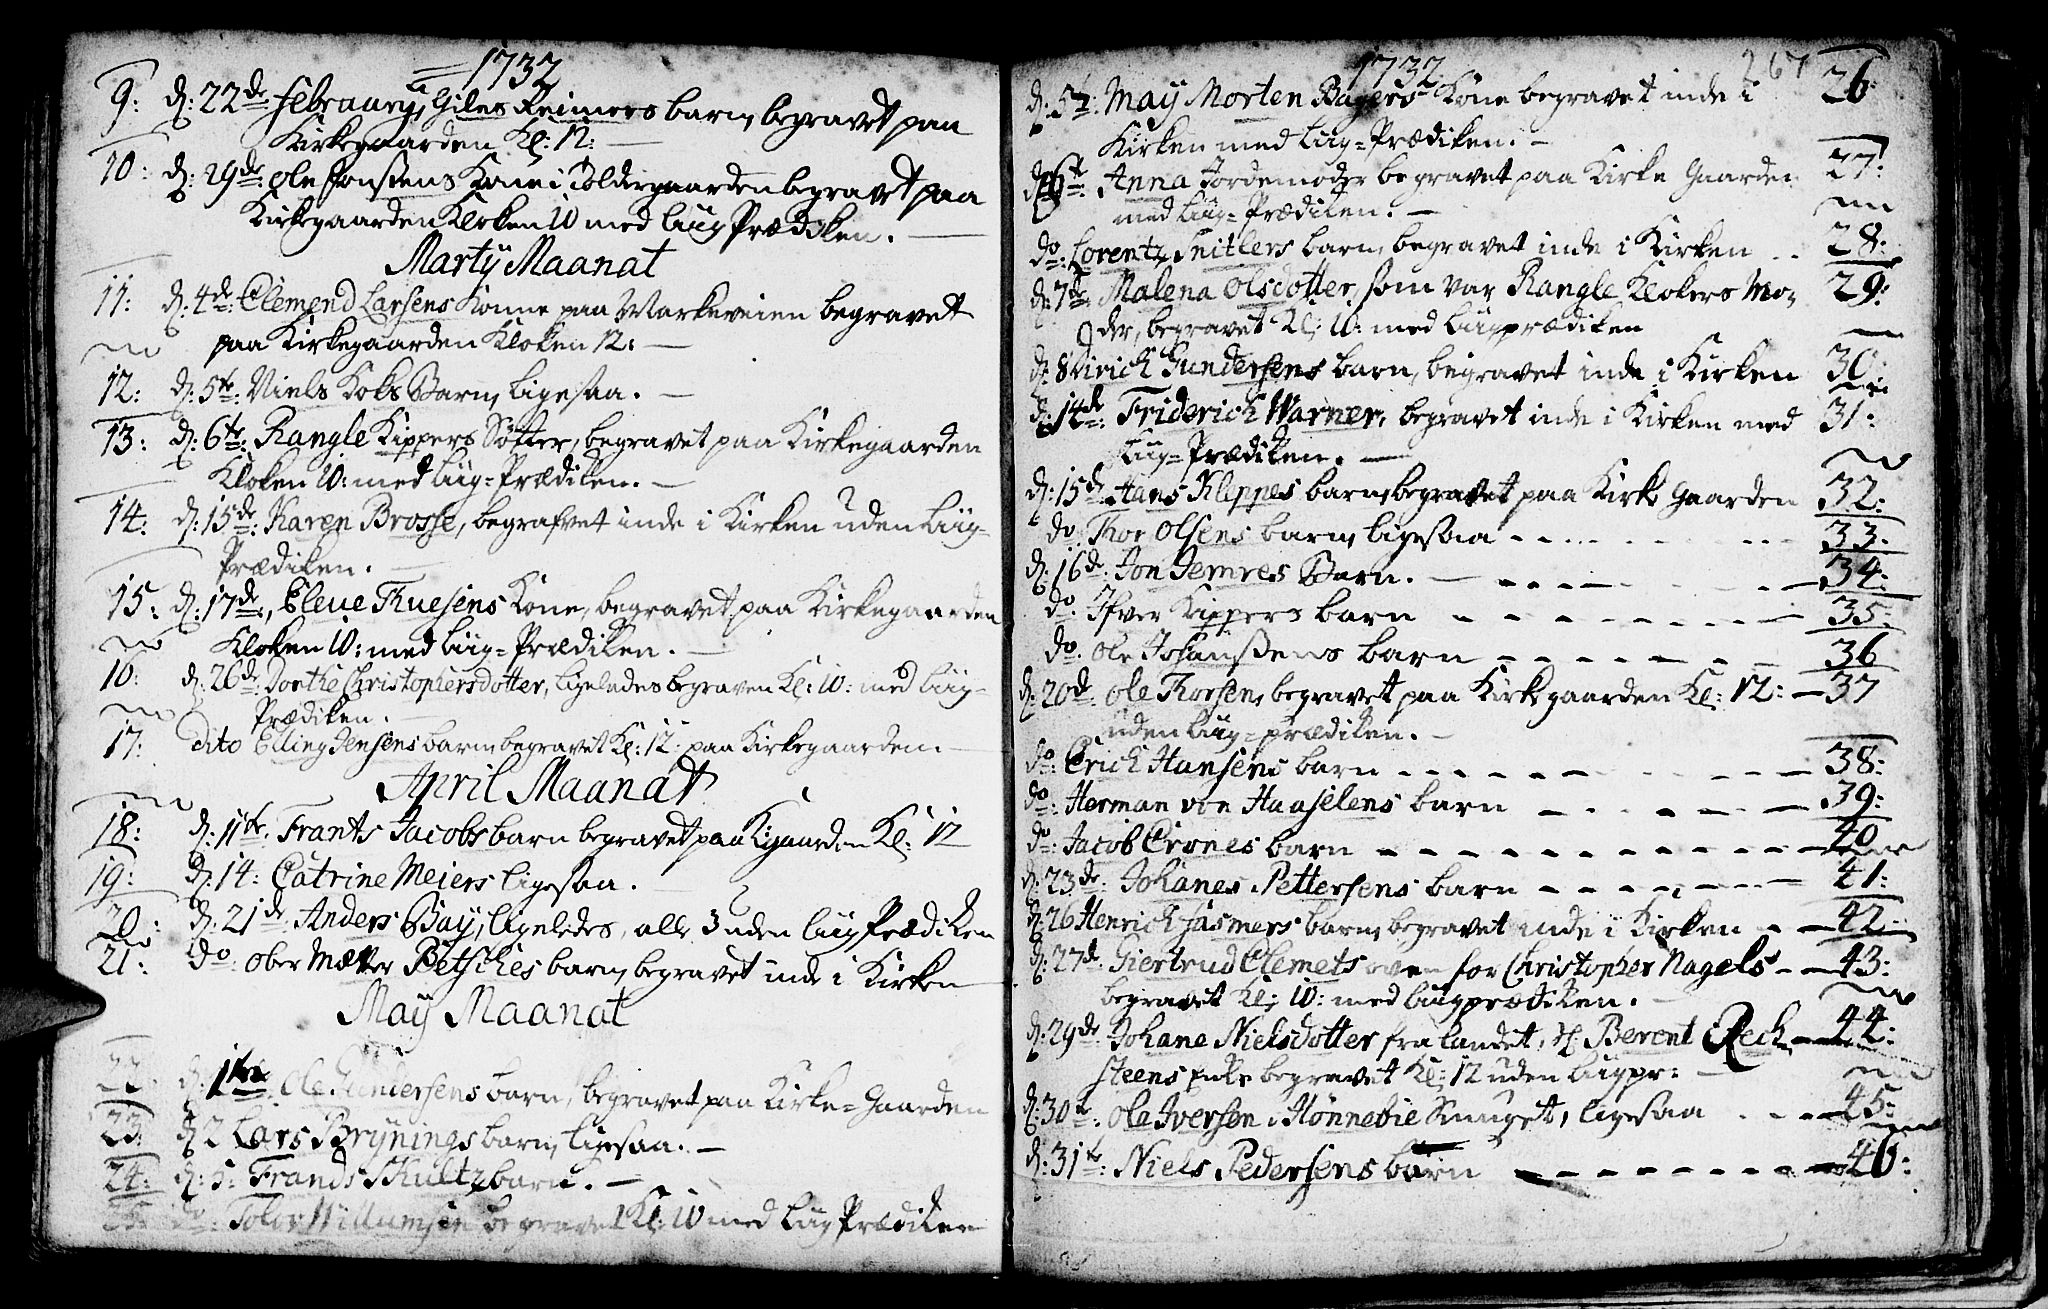 1732
9: d: 22de februarij, Giles Reimers barn, begravet paa
Kirkegaarden Kl: 12: —
10: d: 29de: ole Jonssens Kone i Toldergaarden begravet paa
Kirkegaarden Kloken 10 med Liig Prædiken. —
Martij Maanat
11: d: 4de: Clemend Larsens Konne paa Markeveien begravet
paa Kirkegaarden Kloken 12: —
12: d: 5te: Niels Koks Barn, ligesaa. —
13: d: 6te: Rangle Kippers Søster, begravet paa Kirkegaarden
Kloken 10: med Liig=Prædiken. —
14: d: 15de: Karen Brosse, begrafvet inde i Kirken uden Liig-
Prædiken. —
15: d: 17de:, Eleue Thuesens Kone, begravet paa Kirkegaarden
Kloken 10: med Liig=Prædiken. —
16: d: 26de: Dorthe Christophersdotter, ligeledes begraven Kl: 10: med Liig-
Prædiken. —
17: dito Elling Jensens barn, begravet Kl: 12: paa Kirkegaarden. —
April Maanat
18: d: 11te: Frants Jacobs barn begravet paa Kgaarden Kl: 12
19: d: 14: Catrine Meiers ligesaa. —
20: d: 21de Anders Bay, ligeledes, alle 3 uden Liig Prædiken
21: do: ober Mæster Petsches barn, begravet inde i Kirken
May Maanat
22: d: 1te Ole Gundersens barn, begravet paa Kirke=Gaarden
23: d: 2 Lars Brÿnings barn, ligesaa. —
24: d: 5: Frands Skultz barn. —
25: do: Tolov Willumsen begravet Kl: 10 med Liig Prædiken
1732 267
d: 5te: May Morten Bagers Kone begravet inde i 26:
Kirken med Liig=Prædiken. —
d: 6te: Anna Jordemoder begravet paa Kirke Gaarden 27:
med Liig=Prædiken. —
do: Lorentz Snitlers barn, begravet inde i Kirken 28:
d: 7de Malena olsdotter, som var Rangle Klokers Mo- 29:
der, begravet Kl: 10: med Liigprædiken
d: 8 Uirich Gundersens barn, begravet inde i Kirken 30:
d: 14de Friderich Warner, begravet inde i Kirken med 31:
Liig=Prædiken. —
d: 15de Hans Kleppes barn, begravet paa Kirke Gaarden 32:
do Thor olsens barn, ligesaa 33:
d: 16de: Jon Jemres Barn. — 34:
do: Ifver Kippers barn 35:
do: ole Johanssens barn 36
d: 20de: ole Thorsen, begravet paa Kirkegaarden Kl: 12: — 37
uden Liig=prædiken. —
do: Erich Hansens barn 38:
do: Herman von Haaselens barn 39:
do: Jacob Crones barn 40
d: 23de: Johanes Pettersens barn 41:
d: 26 Henrich Jasmers barn, begravet inde i Kirken 42:
d: 27de: Giertrud Clemets oven for Christopher Nagels 43:
begravet Kl: 10: med Liigprædiken. —
d: 29de Johane Nielsdotter fra landet, H: Berent Rech 44:
steens Enke begravet Kl: 12 uden Liigpr: —
d: 30te: ole Iversen i Hønnebie Smuget, ligesaa 45:
d: 31te: Niels Pedersens barn 46: